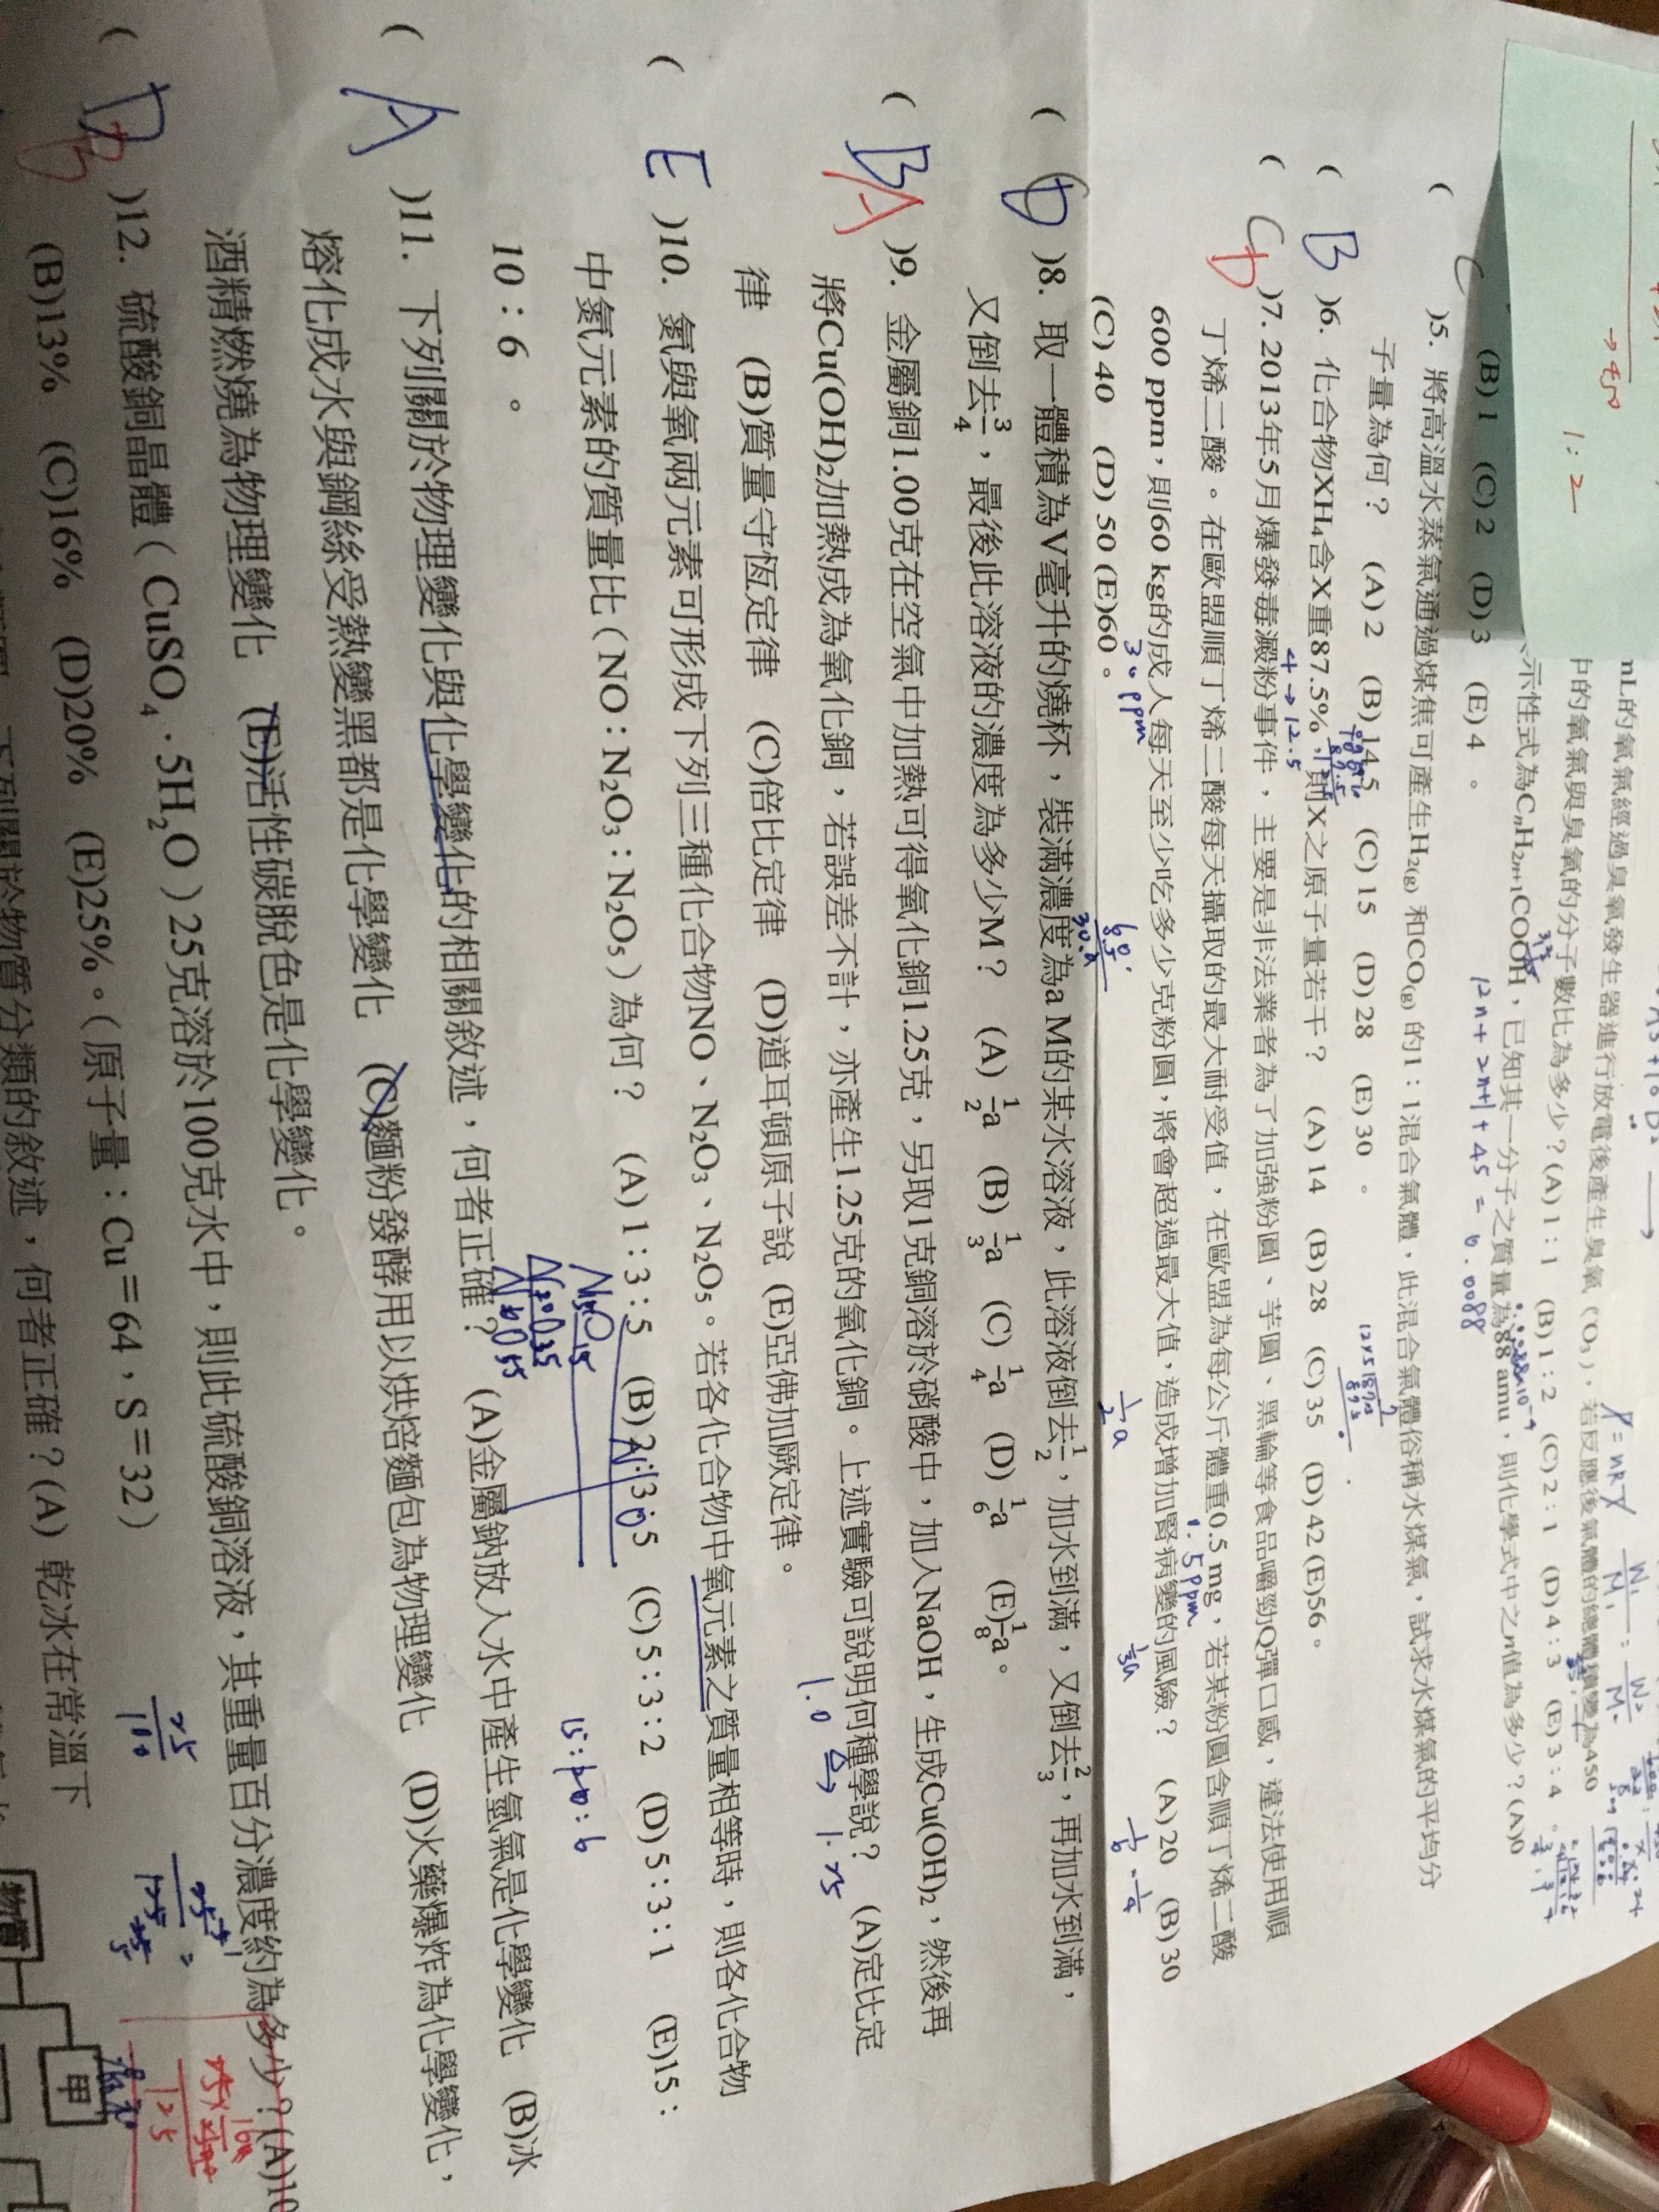 →450
1:2
mL的氧氣經過臭氧發生器進行放電後產生臭氧（O₃），若反應後氣體的總體積變為450
中的氧氣與臭氧的分子數比為多少？(A) 1：1 (B) 1：2 (C) 2：1 (D) 4：3 (E) 3：4 。
示性式為CₙH₂ₙ₊₁COOH，已知其一分子之質量為88 amu，則化學式中之n值為多少？(A)0
(B) 1 (C) 2 (D) 3 (E) 4 。
12n+2n+1+45=
C
)5. 將高溫水蒸氣通過煤焦可產生H₂(g) 和CO(g) 的1：1混合氣體，此混合氣體俗稱水煤氣，試求水煤氣的平均分
子量為何？ (A) 2 (B) 14.5 (C) 15 (D) 28 (E) 30 。
( B )6. 化合物XH₄含X重87.5%，則X之原子量若干？ (A) 14 (B) 28 (C) 35 (D) 42 (E)56。
4→12.5
( C D )7. 2013年5月爆發毒澱粉事件，主要是非法業者為了加強粉圓、芋圓、黑輪等食品嚼勁Q彈口感，違法使用順
丁烯二酸。在歐盟順丁烯二酸每天攝取的最大耐受值，在歐盟為每公斤體重0.5 mg，若某粉圓含順丁烯二酸
600 ppm，則60 kg的成人每天至少吃多少克粉圓，將會超過最大值，造成增加腎病變的風險？ (A) 20 (B) 30
(C) 40 (D) 50 (E)60。
30 ppm
½a
( D )8. 取一體積為V毫升的燒杯，裝滿濃度為a M的某水溶液，此溶液倒去1/2，加水到滿，又倒去2/3，再加水到滿，
又倒去3/4，最後此溶液的濃度為多少M？ (A) 1/2a (B) 1/3a (C) 1/4a (D) 1/6a (E)1/8a。
( B A )9. 金屬銅1.00克在空氣中加熱可得氧化銅1.25克，另取1克銅溶於硝酸中，加入NaOH，生成Cu(OH)₂，然後再
將Cu(OH)₂加熱成為氧化銅，若誤差不計，亦產生1.25克的氧化銅。上述實驗可說明何種學說？ (A)定比定
律 (B)質量守恆定律 (C)倍比定律 (D)道耳頓原子說 (E)亞佛加厥定律。
1.0 △→ 1.25
( E )10. 氮與氧兩元素可形成下列三種化合物NO、N₂O₃、N₂O₅。若各化合物中氧元素之質量相等時，則各化合物
中氮元素的質量比（NO：N₂O₃：N₂O₅）為何？ (A) 1：3：5 (B) 2：3：5 (C) 5：3：2 (D) 5：3：1 (E)15：
10：6 。
15:10:6
( A )11. 下列關於物理變化與化學變化的相關敘述，何者正確？ (A)金屬鈉放入水中產生氫氣是化學變化 (B)冰
熔化成水與鋼絲受熱變黑都是化學變化 (C)麵粉發酵用以烘焙麵包為物理變化 (D)火藥爆炸為化學變化，
酒精燃燒為物理變化 (E)活性碳脫色是化學變化。
( D B )12. 硫酸銅晶體（CuSO₄．5H₂O）25克溶於100克水中，則此硫酸銅溶液，其重量百分濃度約為多少？(A)10
(B)13% (C)16% (D)20% (E)25%。（原子量：Cu＝64，S＝32）
下列關於物質分類的敘述，何者正確？(A) 乾冰在常溫下
物質
甲